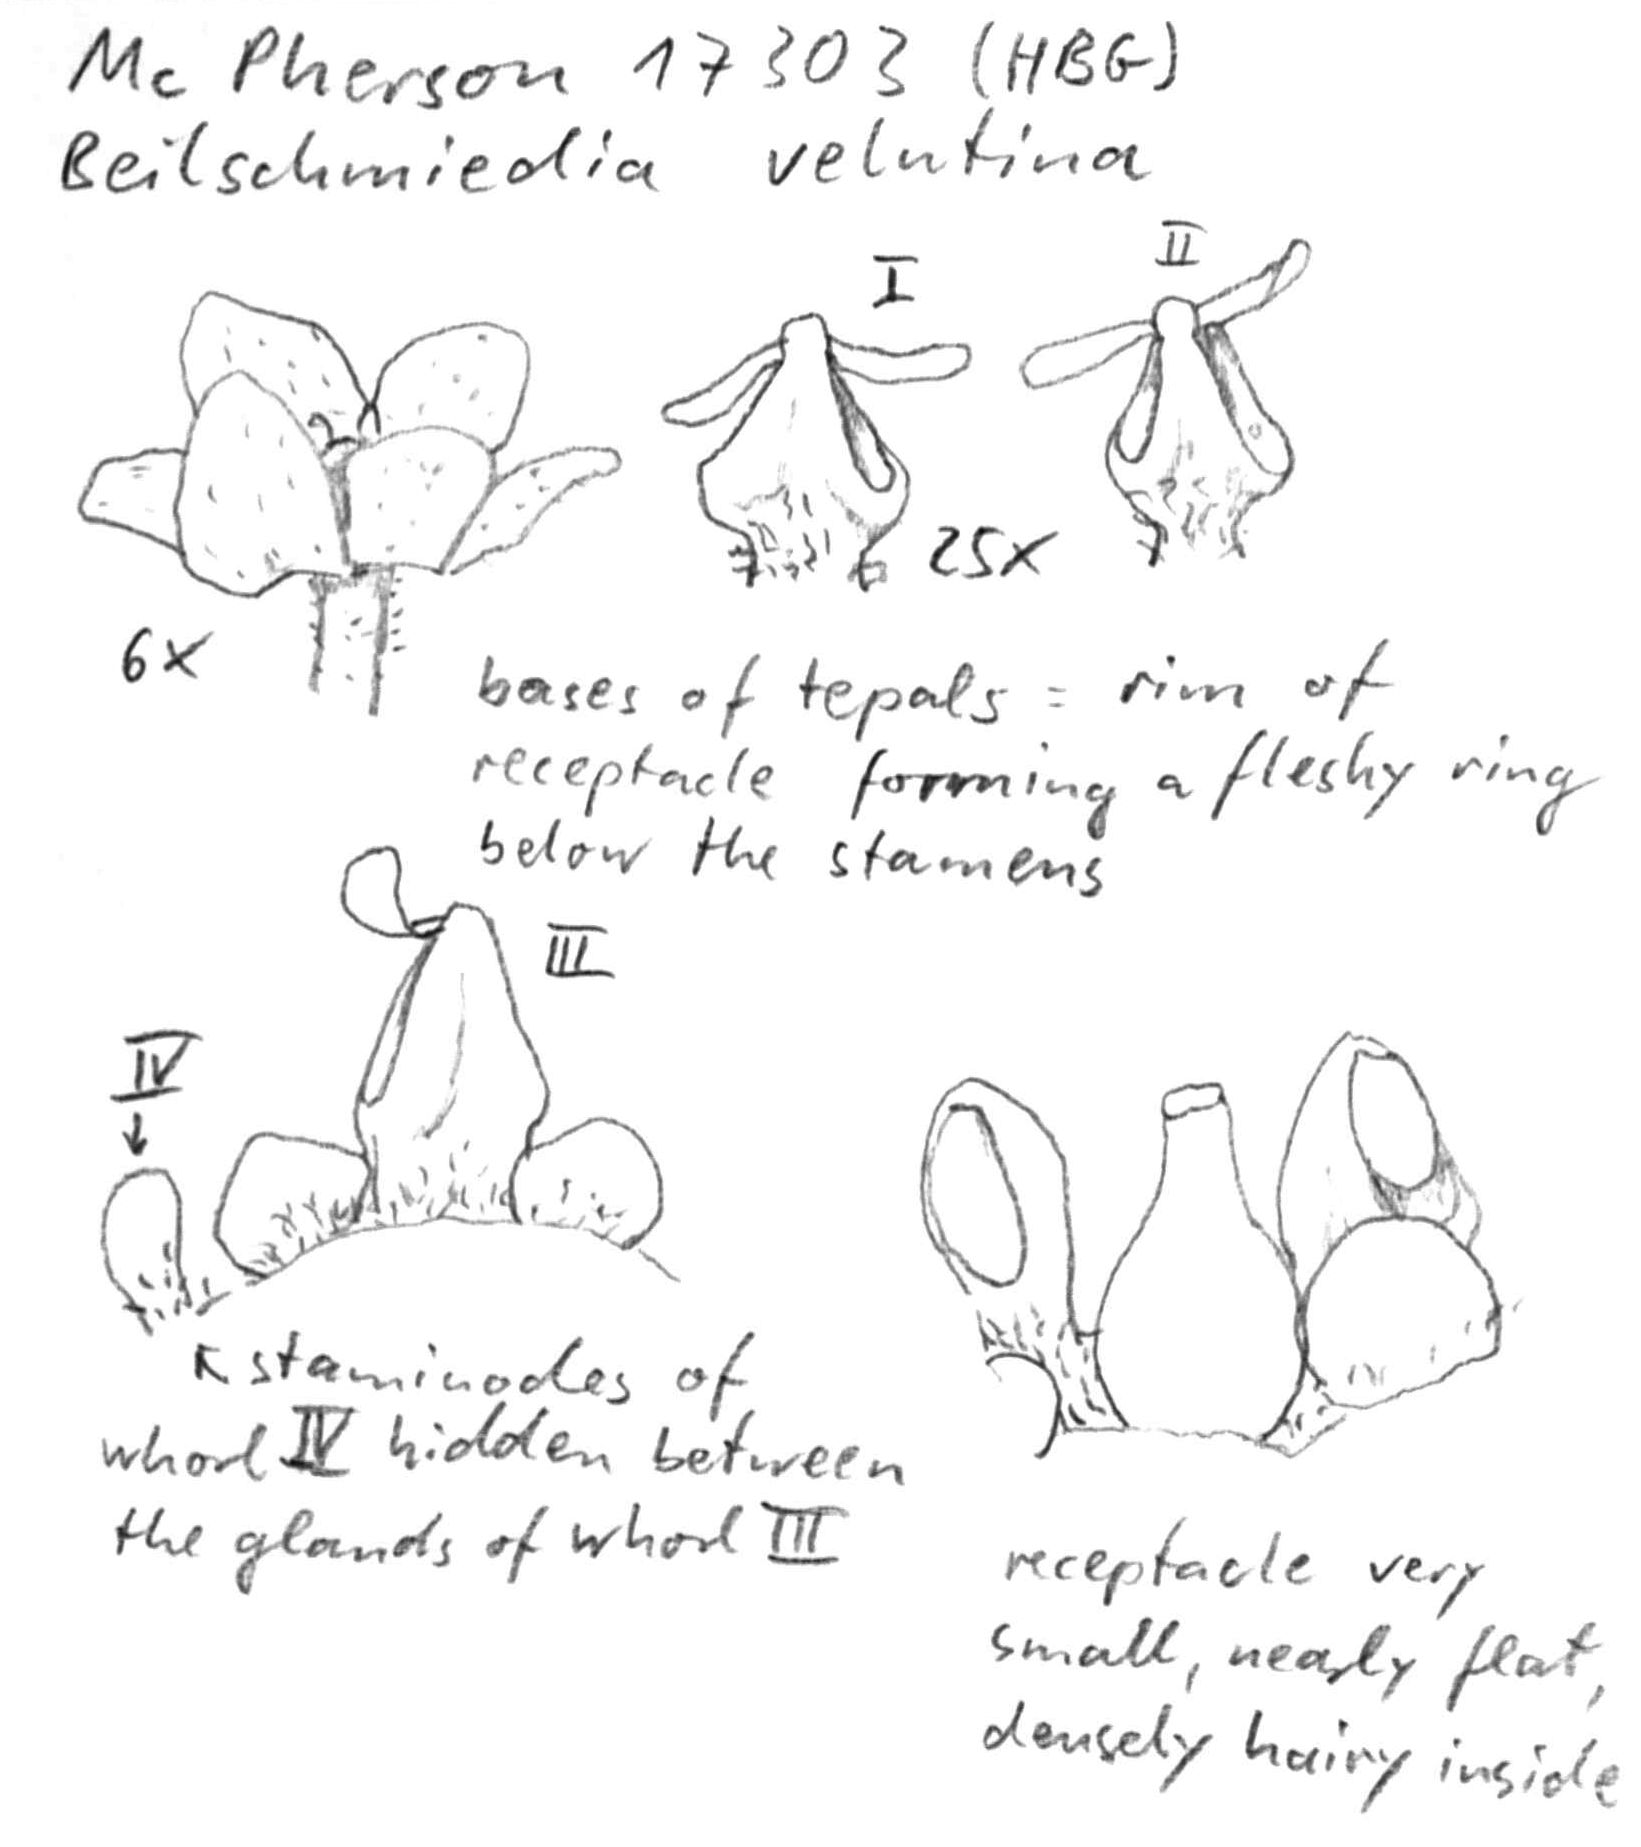 Mc Pherson 17303 (HBG)
Beilschmiedia velutina
I
II
25x
6x
bases of tepals = rim of
receptacle forming a fleshy ring
below the stamens
III
IV
staminodes of
whorl IV hidden between
the glands of whorl III
receptacle very
small, nearly flat,
densely hairy inside